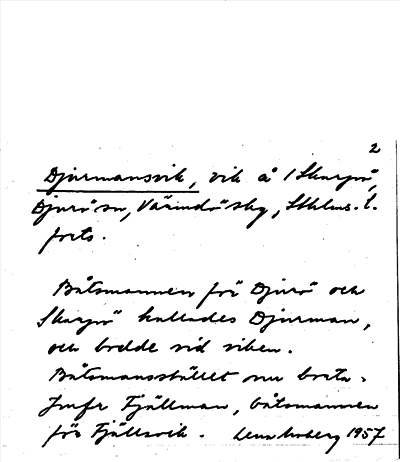 2
Djurmansvik, vik å / Skarpö,
Djurö sn, Värmdö skg, Sthlms. l.
forts.
Båtsmannen för Djurö och
Skarpö kallades Djurman,
och bodde vid viken.
Båtsmansstället nu borta.
Jmfr Fjällman, båtsmannen
för Fjällsvik. 1957